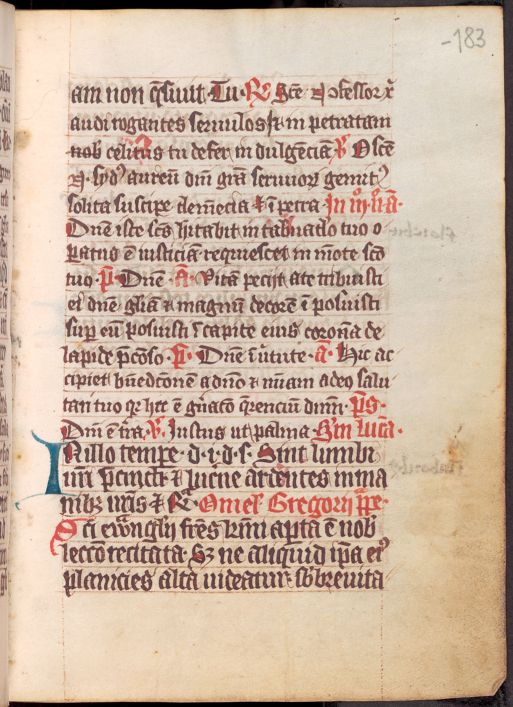 -183
am non q̄siuit · Tu · R Sce ⁊ ꝯfessor xp̄
audi rogantes seruulos ⁊ in petratam
nob celitus tu defer indulgēciā V O scē
syd⁹ aureū dn̄i grā seruuorꝝ gemit⁹
solita suscipe clemēcia ⁊ ī petra In iij° nᵒ a͞
Dn̄e iste scs hītabit in tabn̄aclo tuo o
patus ē iusticiam requiescet in mōte scō
tuo · ps · Dn̄e · a · Vitā pecijt a te tribuisti
ei dn̄e gliā ⁊ magnum decorē ī posuisti
sup eū posuisti ī capite eius coronā de
lapide p̄cōso · ps · Dn̄e ī u̾tute · a · Hic ac
cipiet bn̄edcōnem a dn̄o ⁊ mīam a deo salu
tari tuo qr hec ē gn̄aco querenciū dn̄m · ps ·
Dn̄i ē tra · V · Justus ut palma · Scdm lucā ·
In illo tempe · d · i · d · s · Sint lumbi
uri p̄cincti ⁊ lucne ardentes in ma
nibꝫ uris ⁊ Rᵃ · Omel' Gregorij ppe ·
Sci ewāngelij frēs kmi aperta ē nob
lecco recitata · Sꝫ ne aliquid ip̄a ei⁹
planicies alta uideatur · sb breuita